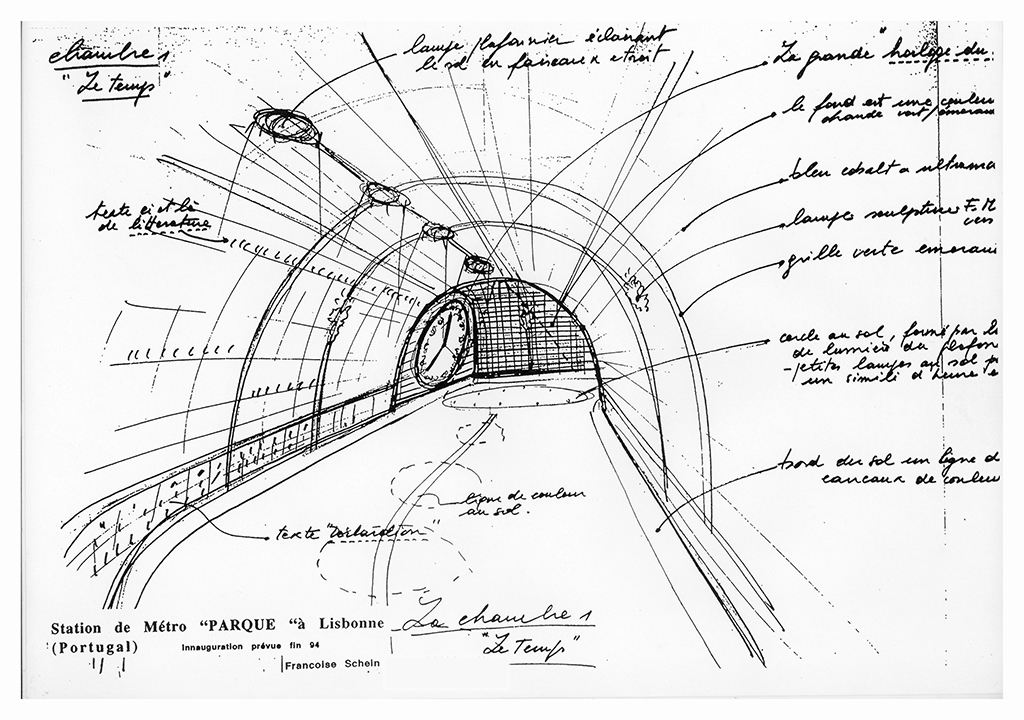 chambre 1
"Le temps"
lampe plafonnier éclairant
le sol en faisceaux étroit
La grande "horloge du
le fond est une couleur
chaude vert/émeraude
bleu cobalt a ultrama
lampe sculpture F.M
vers
grille verte emerau
texte ci et là
de litterature
cercle au sol, formé par le
de lumière du plafon
-petites lampes au sol
un simili d'heure
bord du sol en ligne d
careaux de couleur
ligne de couleur
au sol.
texte "Déclaration"
La chambre 1
"Le Temps"
Station de Métro “PARQUE “à Lisbonne
(Portugal)
Innauguration prévue fin 94
Francoise Schein